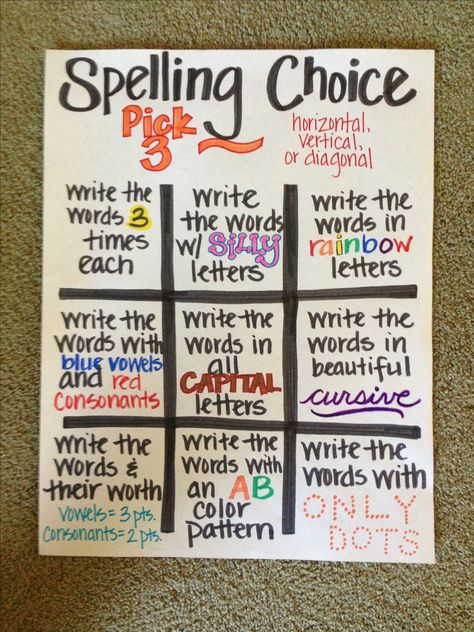 Spelling Choice
Pick
3
horizontal,
vertical,
or diagonal
write the
words 3
times
each
write
the words
w/ SILLY
letters
write the
words in
rainbow
letters
write the
words with
blue vowels
and red
consonants
write the
words in
all
CAPITAL
letters
write the
words in
beautiful
cursive
write the
words &
their worth
vowels = 3 pts.
consonants = 2 pts.
write the
words with
an AB
color
pattern
write the
words with
ONLY
DOTS